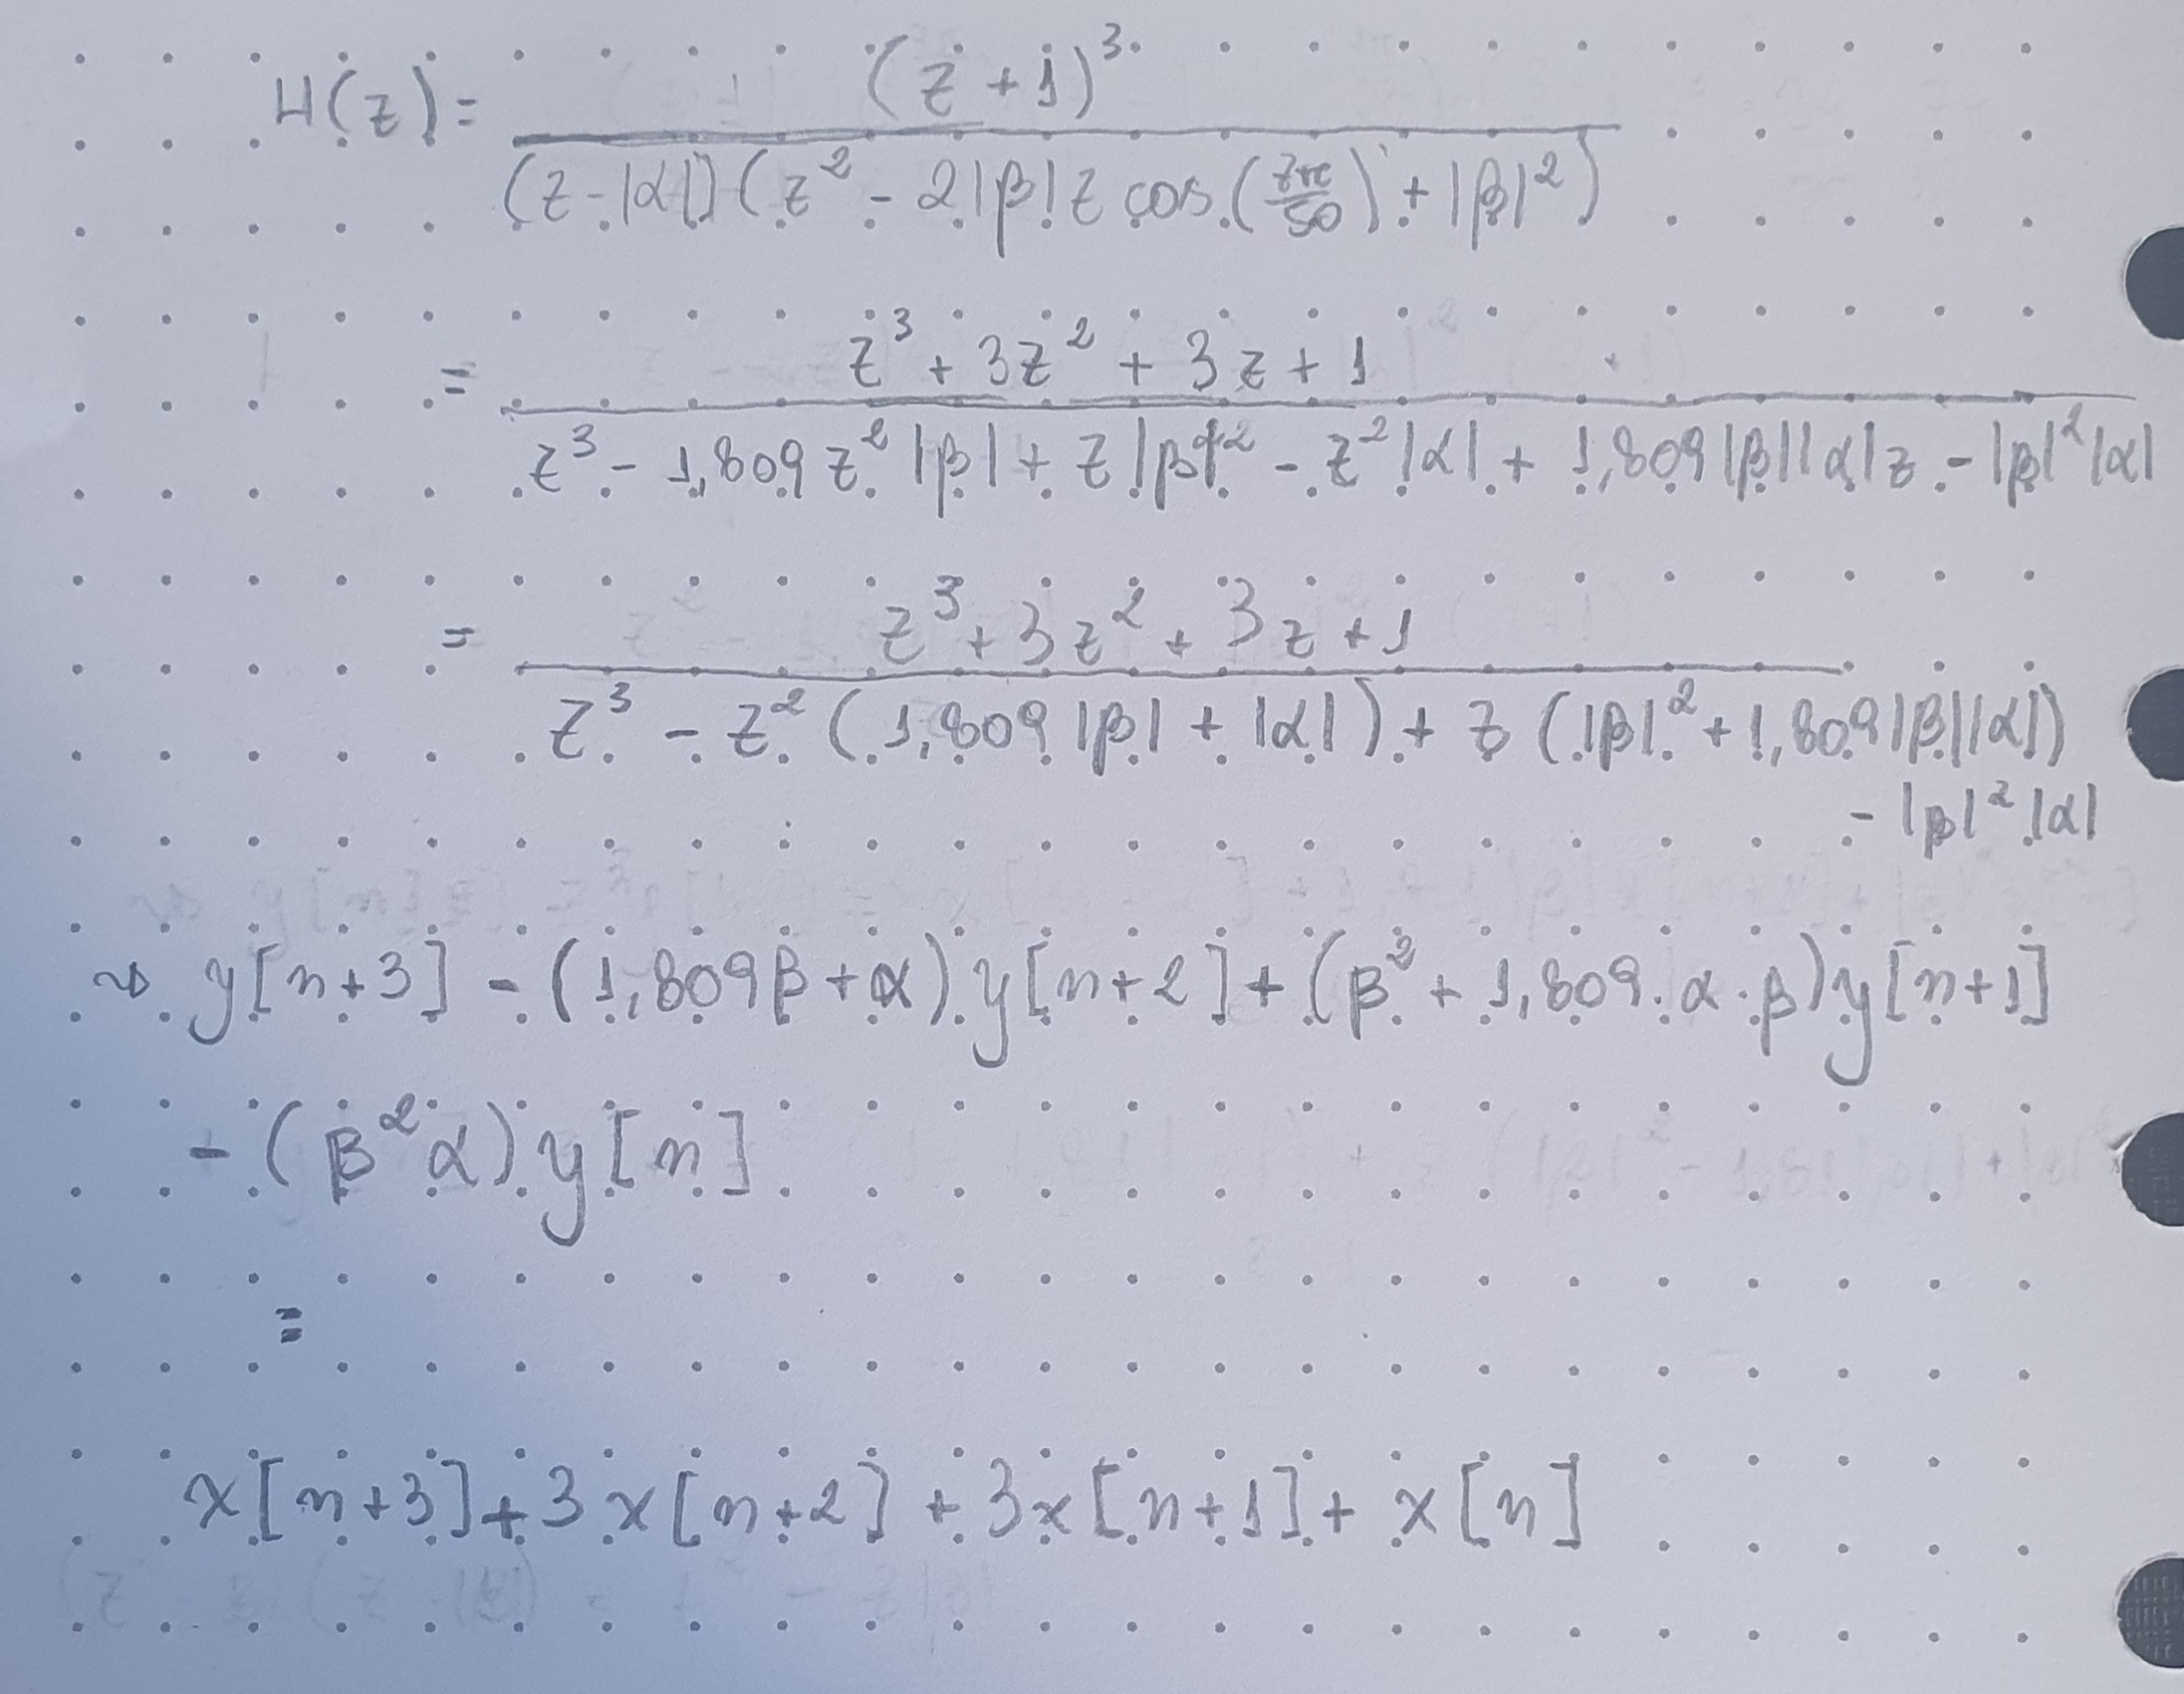 H(z) = (z + 1)³
(z - |α|) (z² - 2|β|z cos(7π/50) + |β|²)
= z³ + 3z² + 3z + 1
z³ - 1,809 z² |β| + z |β|² - z² |α| + 1,809 |β| |α| z - |β|² |α|
= z³ + 3z² + 3z + 1
z³ - z² (1,809 |β| + |α|) + z (|β|² + 1,809 |β| |α|)
- |β|² |α|
⇝ y[n+3] - (1,809β + α) y[n+2] + (β² + 1,809 · α · β) y[n+1]
- (β²α) y[n]
=
x[n+3] + 3x[n+2] + 3x[n+1] + x[n]